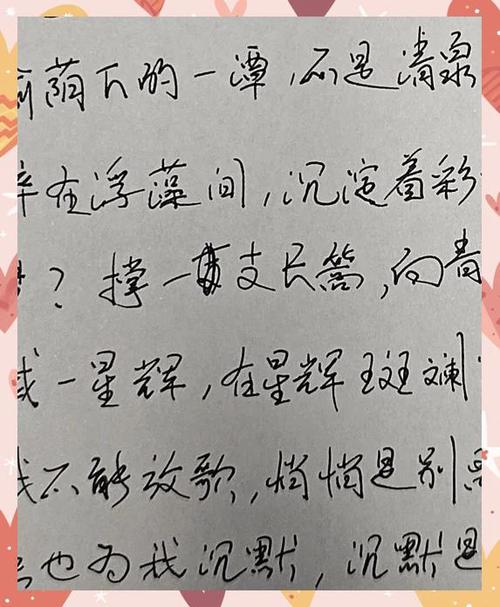 荫下的一潭,不是清泉
在浮藻间,沉淀着彩
?撑一支长篙,向青
一星辉,在星辉斑斓
我不能放歌,悄悄是别
也为我沉默,沉默是